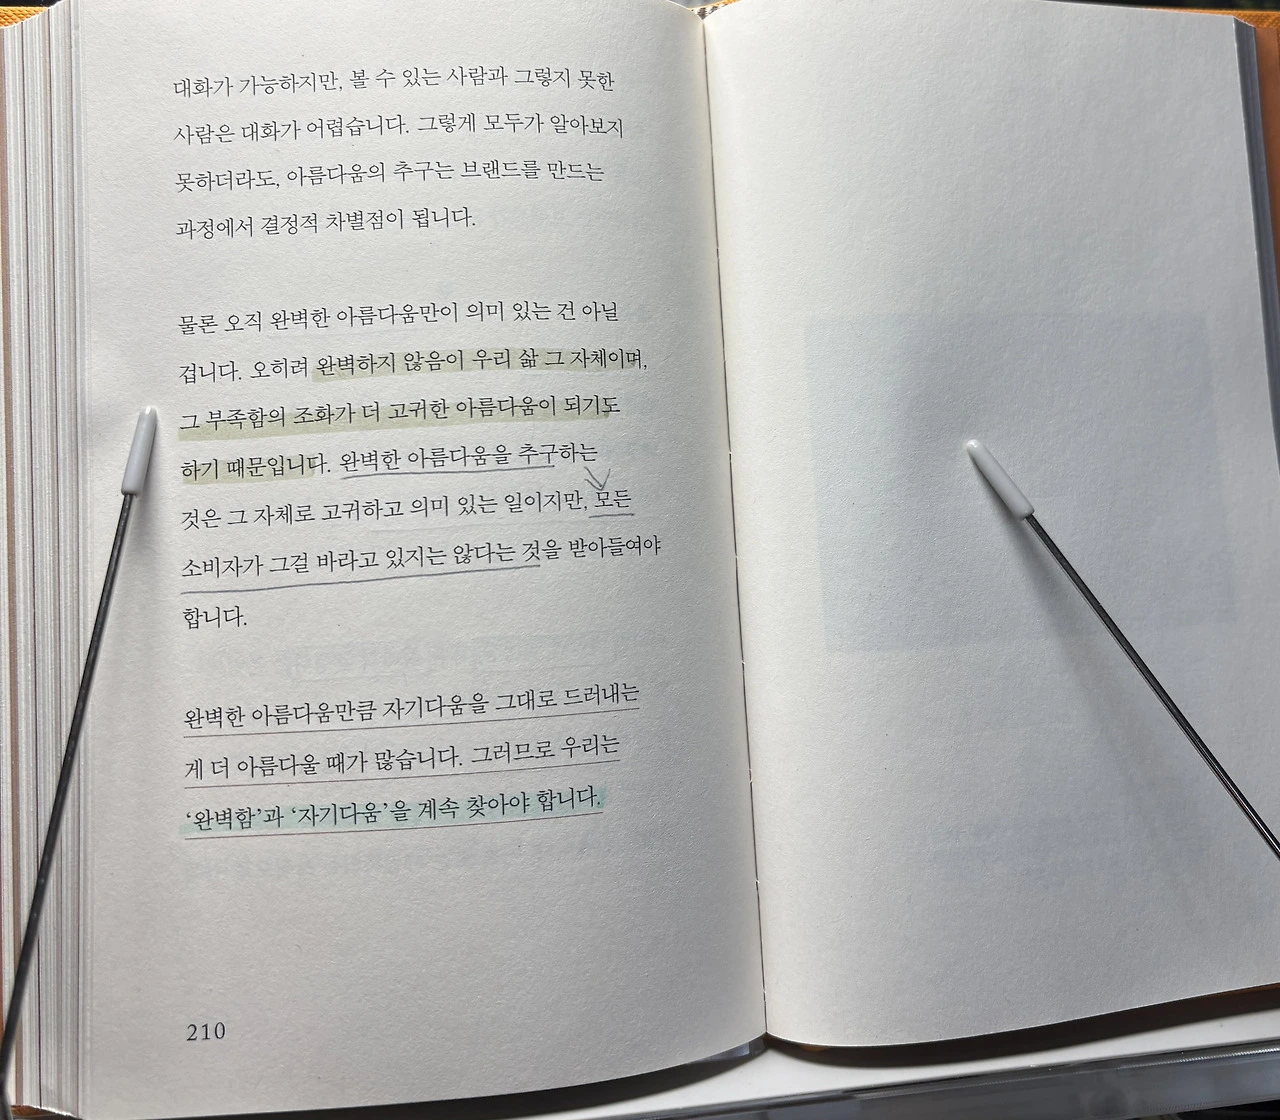 대화가 가능하지만, 볼 수 있는 사람과 그렇지 못한
사람은 대화가 어렵습니다. 그렇게 모두가 알아보지
못하더라도, 아름다움의 추구는 브랜드를 만드는
과정에서 결정적 차별점이 됩니다.
물론 오직 완벽한 아름다움만이 의미 있는 건 아닐
겁니다. 오히려 완벽하지 않음이 우리 삶 그 자체이며,
그 부족함의 조화가 더 고귀한 아름다움이 되기도
하기 때문입니다. 완벽한 아름다움을 추구하는
것은 그 자체로 고귀하고 의미 있는 일이지만, 모든
소비자가 그걸 바라고 있지는 않다는 것을 받아들여야
합니다.
완벽한 아름다움만큼 자기다움을 그대로 드러내는
게 더 아름다울 때가 많습니다. 그러므로 우리는
‘완벽함’과 ‘자기다움’을 계속 찾아야 합니다.
210